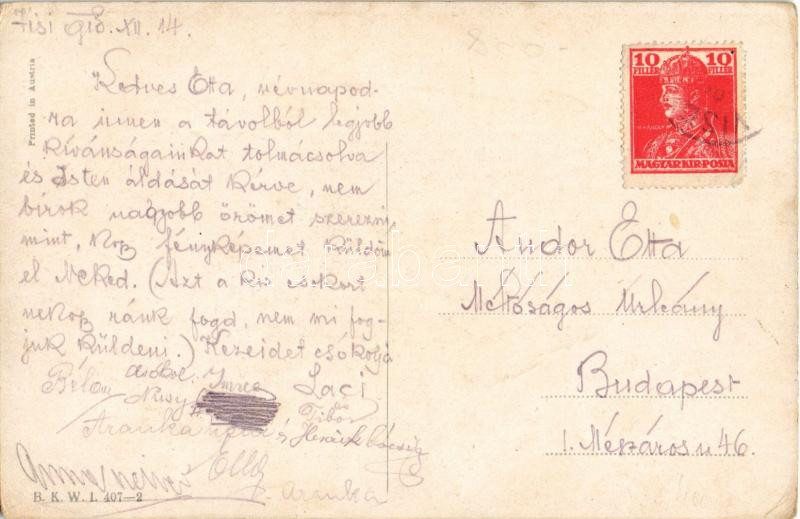 Tisi 918. XII. 14.
Printed in Austria
Kedves Etta, névnapod-
ra innen a távolból legjobb
kívánságainkat tolmácsolva
és Isten áldását kérve, nem
birok nagyobb örömet szerezni,
mint, hogy fényképemet küldöm
el Neked. (Azt a kis csokort
nehogy ránk fogd, nem mi fog-
juk küldeni.) Kezeidet csókolja
Imre Laci
Nusy Tibor
Aranka Henrik bácsi
Anna Ella
Aranka
B. K. W. I. 407—2
10 FILLÉR 10 FILLÉR
MAGYAR KIR. POSTA
Andor Etta
Méltóságos Úrhány
Budapest
I. Mészáros u 46.